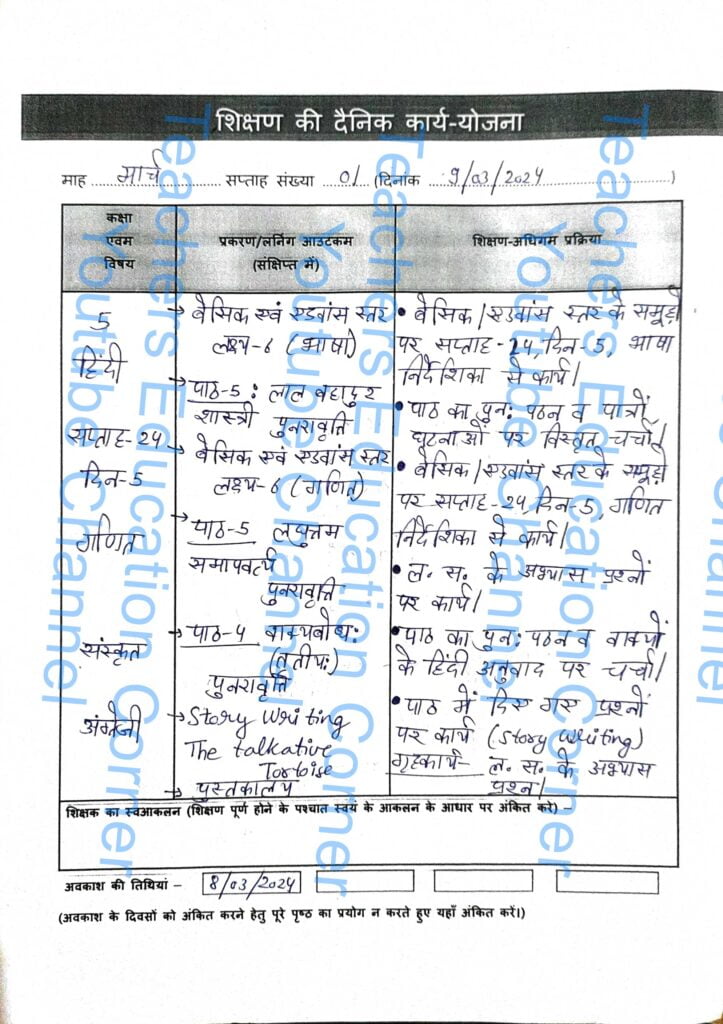 शिक्षण की दैनिक कार्य-योजना
माह मार्च सप्ताह संख्या 01 (दिनांक 9/03/2024)
कक्षा
एवम
विषय
प्रकरण/लर्निंग आउटकम
(संक्षिप्त में)
शिक्षण-अधिगम प्रक्रिया
5
हिंदी
सप्ताह-24
दिन-5
गणित
संस्कृत
अंग्रेजी
→ बेसिक एवं एडवांस स्तर
लक्ष्य-6 (भाषा)
→ पाठ-5 : लाल बहादुर
शास्त्री पुनरावृत्ति
→ बेसिक एवं एडवांस स्तर
लक्ष्य-6 (गणित)
→ पाठ-5 लघुत्तम
समापवर्त्य
पुनरावृत्ति
→ पाठ-4 वाक्यबोधः
(तृतीयः)
पुनरावृत्ति
→ Story Writing
The talkative
Tortoise
→ पुस्तकालय
• बेसिक/एडवांस स्तर के समूहों
पर सप्ताह-24, दिन-5, भाषा
निर्देशिका से कार्य।
• पाठ का पुनः पठन व पात्रों
घटनाओं पर विस्तृत चर्चा।
• बेसिक/एडवांस स्तर के समूहों
पर सप्ताह-24, दिन-5, गणित
निर्देशिका से कार्य।
• ल. स. के अभ्यास प्रश्नों
पर कार्य।
• पाठ का पुनः पठन व वाक्यों
के हिंदी अनुवाद पर चर्चा।
• पाठ में दिए गए प्रश्नों
पर कार्य (Story Writing)
गृहकार्य- ल. स. के अभ्यास
प्रश्न।
शिक्षक का स्वआकलन (शिक्षण पूर्ण होने के पश्चात स्वयं के आकलन के आधार पर अंकित करें) –
अवकाश की तिथियां – 8/03/2024
(अवकाश के दिवसों को अंकित करने हेतु पूरे पृष्ठ का प्रयोग न करते हुए यहाँ अंकित करें।)
Teachers Education Corner
Youtube Channel
Teachers Education Corner
Youtube Channel
Teachers Education Corner
Youtube Channel